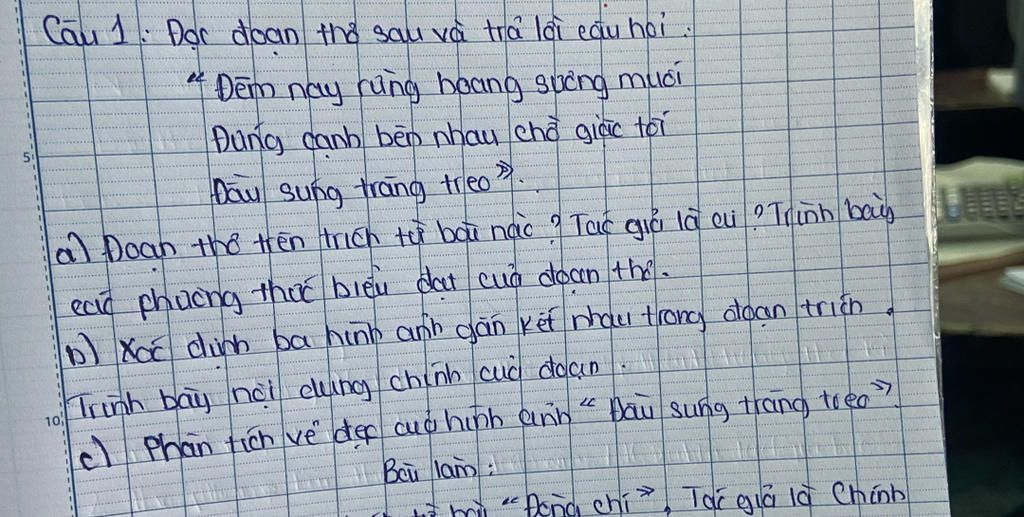 Câu 1: Đọc đoạn thơ sau và trả lời câu hỏi:
“Đêm nay rừng hoang sương muối
Đứng cạnh bên nhau chờ giặc tới
Đầu súng trăng treo”.
a) Đoạn thơ trên trích từ bài nào? Tác giả là ai? Trình bày
các phương thức biểu đạt của đoạn thơ.
b) Xác định ba hình ảnh gắn kết nhau trong đoạn trích.
Trình bày nội dung chính của đoạn.
c) Phân tích vẻ đẹp của hình ảnh “Đầu súng trăng treo”.
Bài làm:
từ bài “Đồng chí”, Tác giả là Chính
5
10